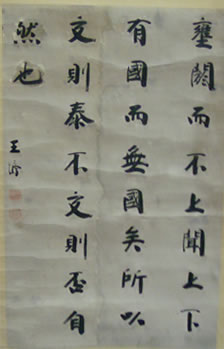 壅閼而不上聞上下
有國而無國矣所以
交則泰不交則否自
然也
王